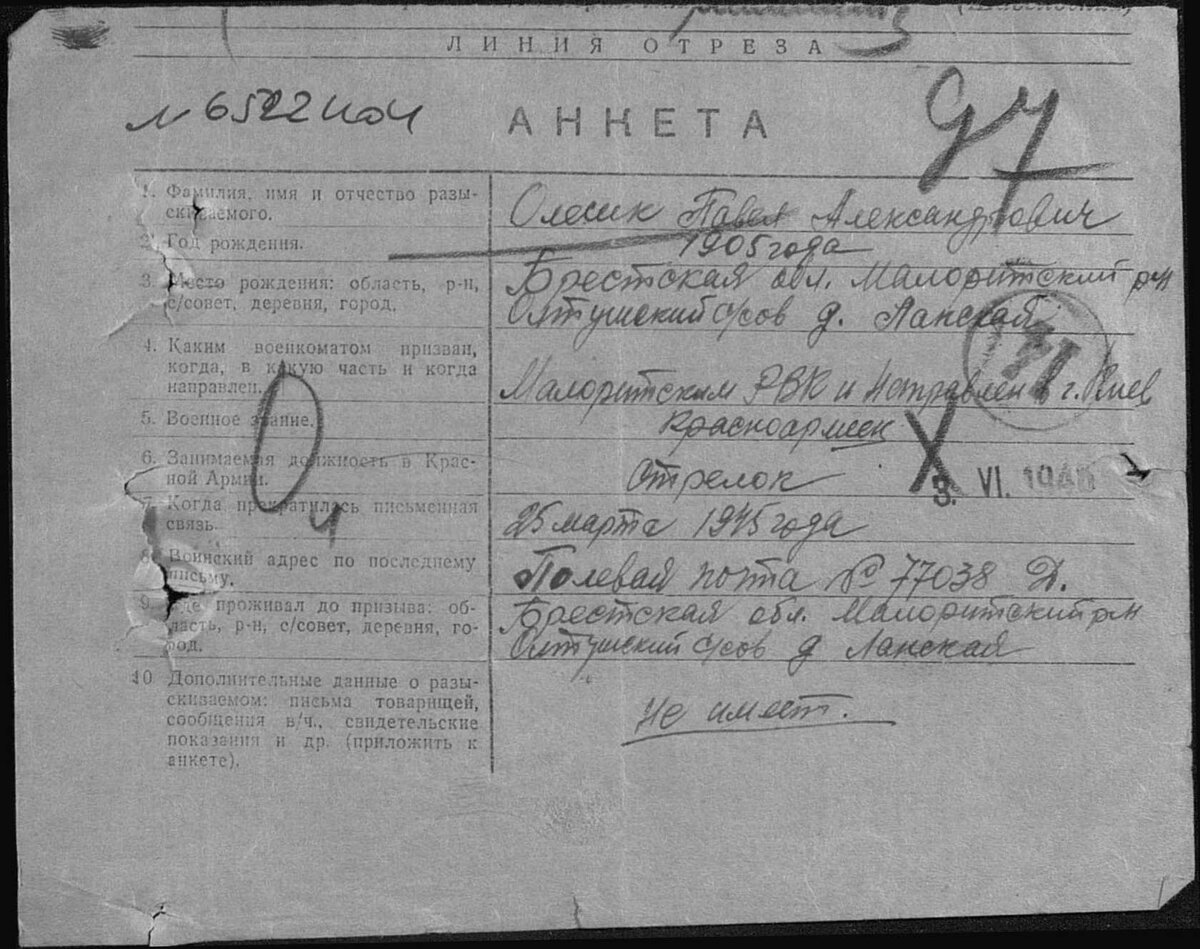 ЛИНИЯ ОТРЕЗА
97
АНКЕТА
1. Фамилия, имя и отчество разы-
скиваемого.
Олесик Павел Александрович
2. Год рождения.
1905 года
3. Место рождения: область, р-н,
с/совет, деревня, город.
Брестская обл. Малоритский р-н
Олтушский с/сов д. Ланская
4. Каким военкоматом призван,
когда, в какую часть и когда
направлен.
Малоритским РВК и направлен в г. Киев
5. Военное звание.
Красноармеек
6. Занимаемая должность в Крас-
ной Армии.
Стрелок
3. VI. 1946
7. Когда прекратилась письменная
связь.
25 марта 1945 года
8. Воинский адрес по последнему
письму.
Полевая почта № 77038 Д.
9. Где проживал до призыва: об-
ласть, р-н, с/совет, деревня, го-
род.
Брестская обл. Малоритский р-н
Олтушский с/сов д Ланская
10. Дополнительные данные о разы-
скиваемом: письма товарищей,
сообщения в/ч., свидетельские
показания и др. (приложить к
анкете).
Не имеет.